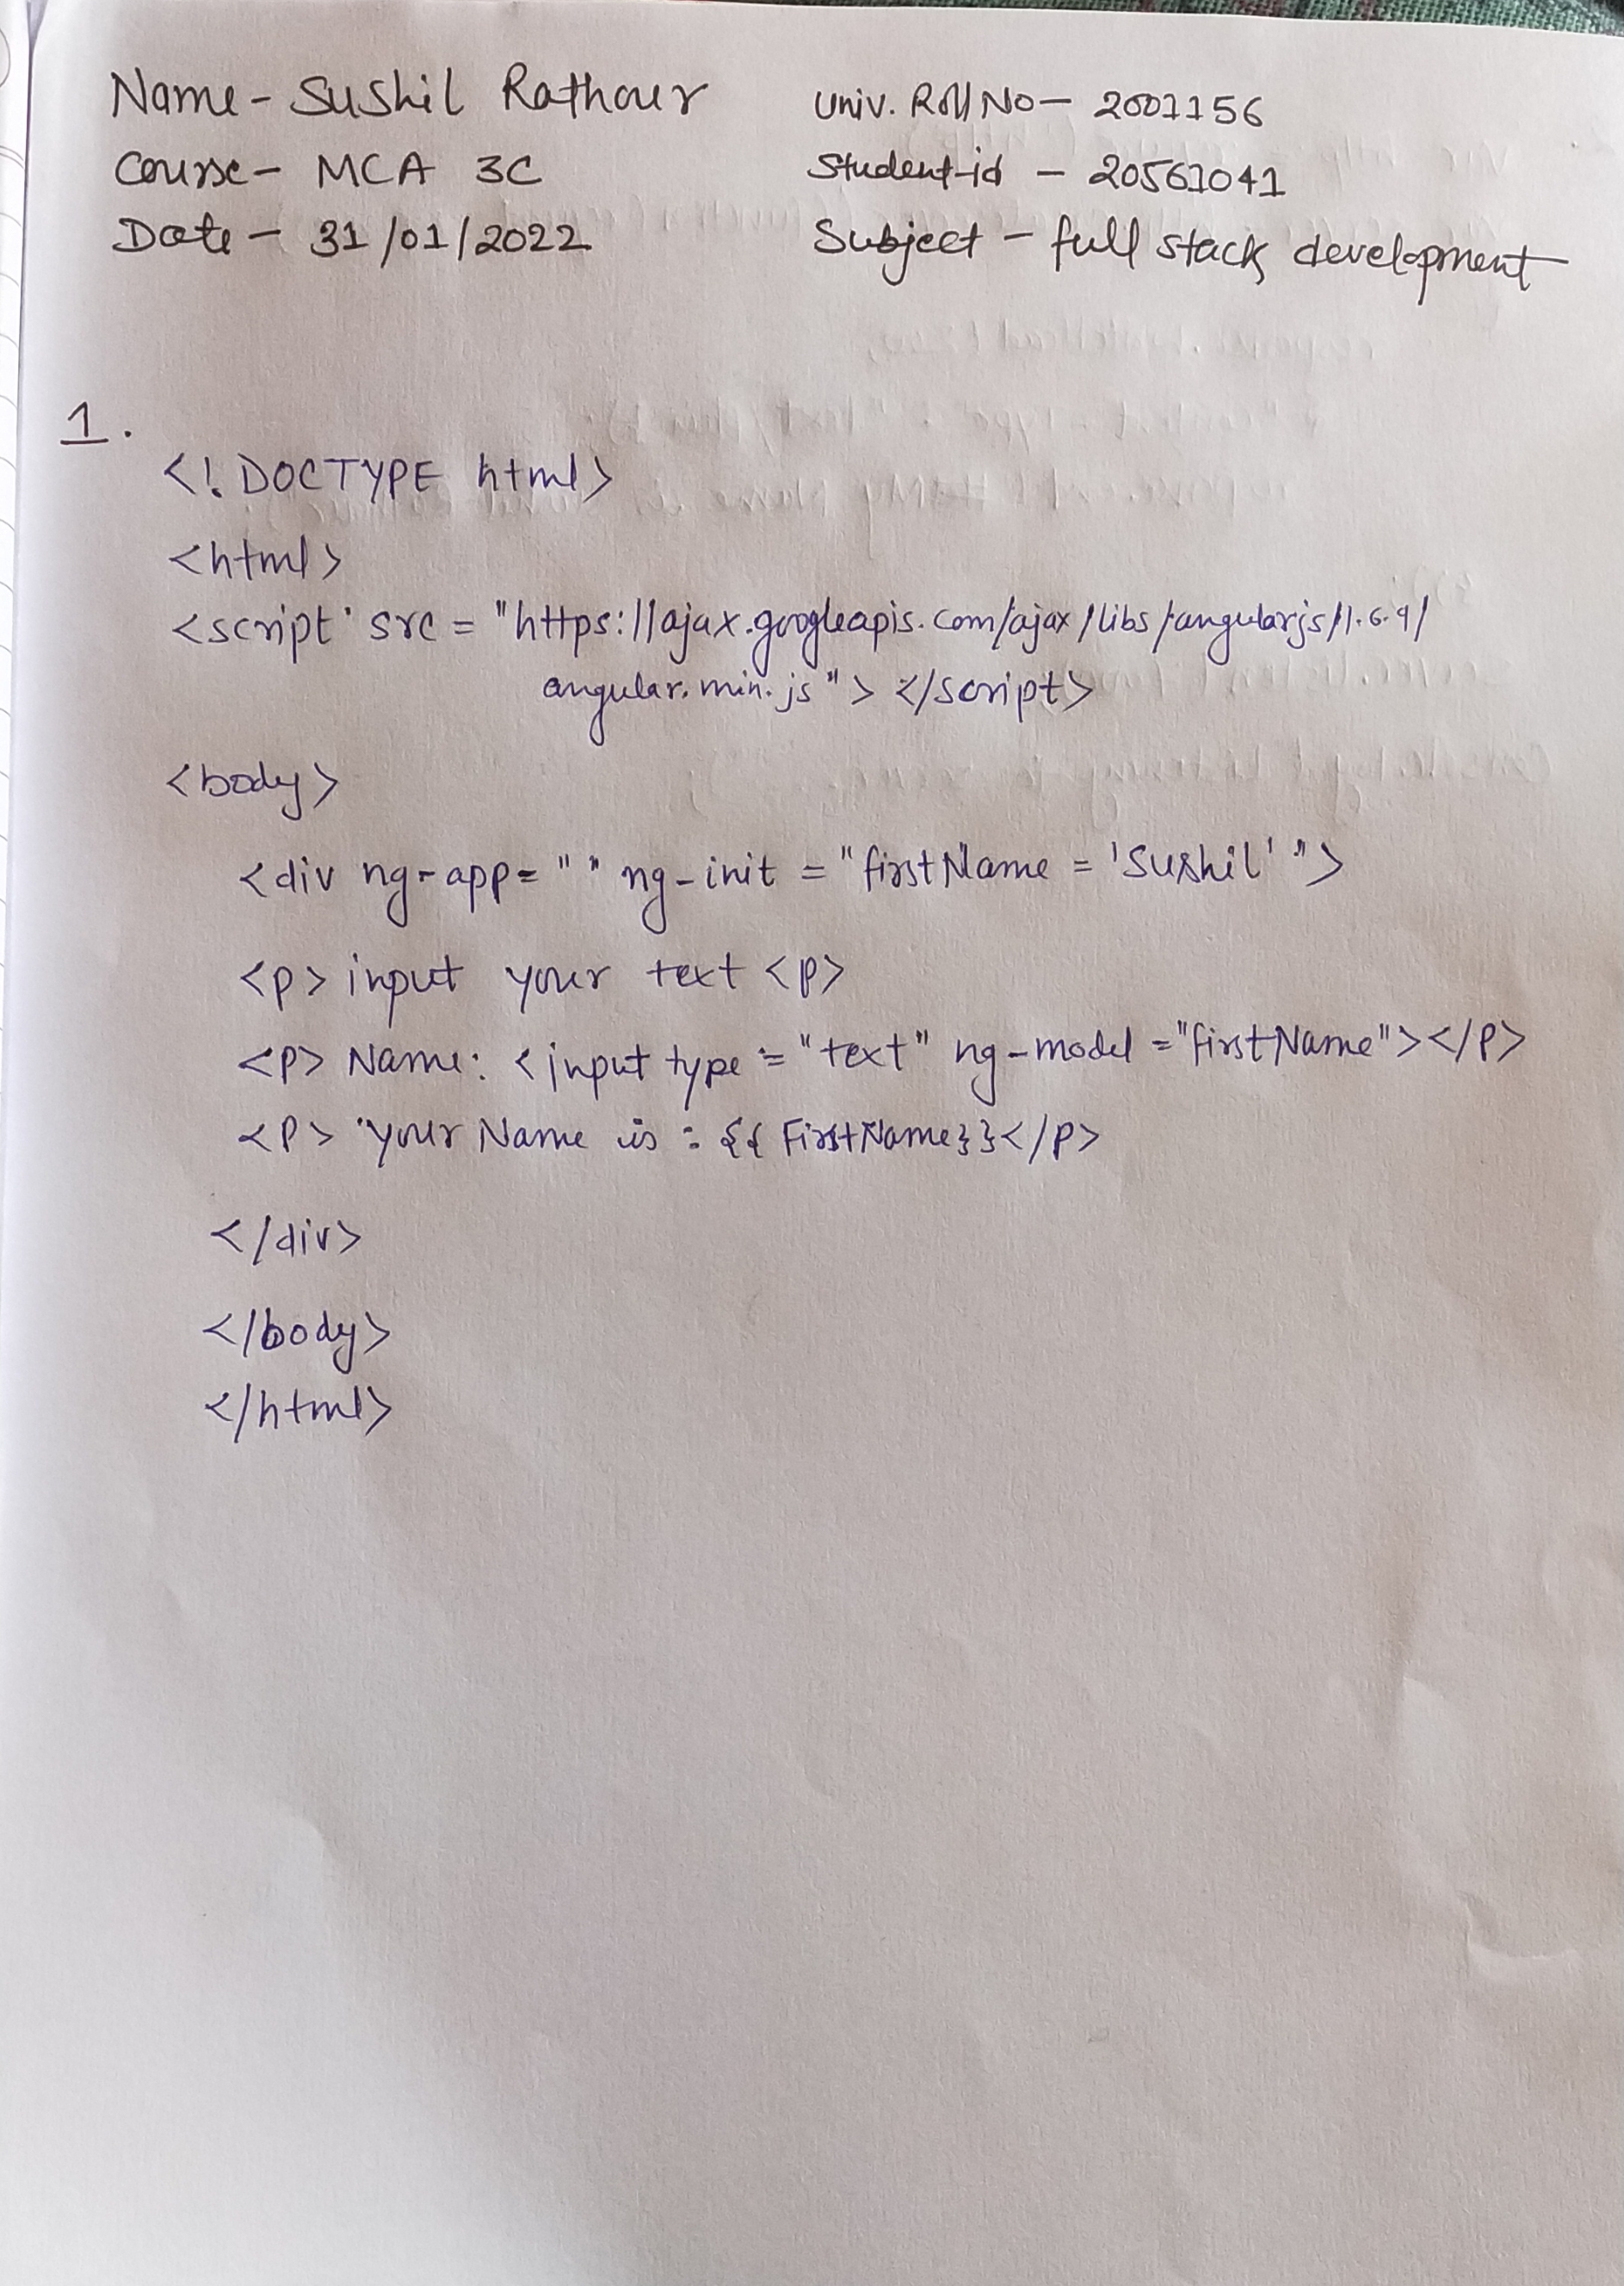 Name - Sushil Rathour
Univ. Roll No - 2001156
Course - MCA 3C
Student-id - 20561041
Date - 31/01/2022
Subject - full stack development
1.
<!DOCTYPE html>
<html>
<script src = "https://ajax.googleapis.com/ajax/libs/angularjs/1.6.9/
angular.min.js"> </script>
<body>
<div ng-app= " " ng-init = "firstName = 'Sushil' ">
<p> input your text <p>
<p> Name: <input type = "text" ng-model ="firstName"></p>
<p> your Name is : {{ FirstName}}</p>
</div>
</body>
</html>